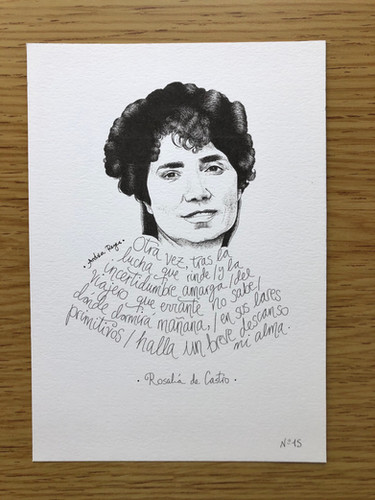 Otra vez, tras la
lucha que rinde/y la
incertidumbre amarga/del
viajero que errante no sabe/
dónde dormirá mañana,/en sus lares
primitivos/halla un breve descanso
mi alma.
· Rosalía de Castro ·
Nº15